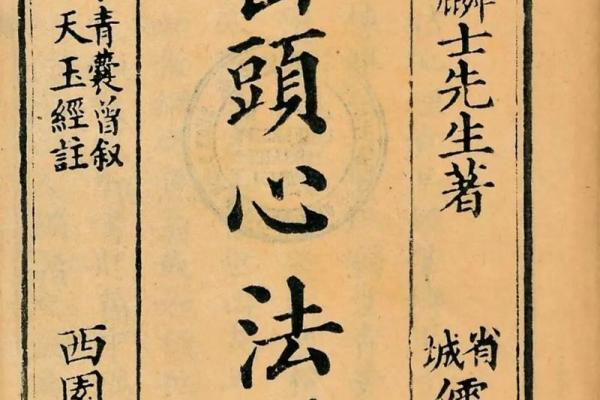 士先生著
省
城
頭心法
青囊曾叙
天玉經註
西園